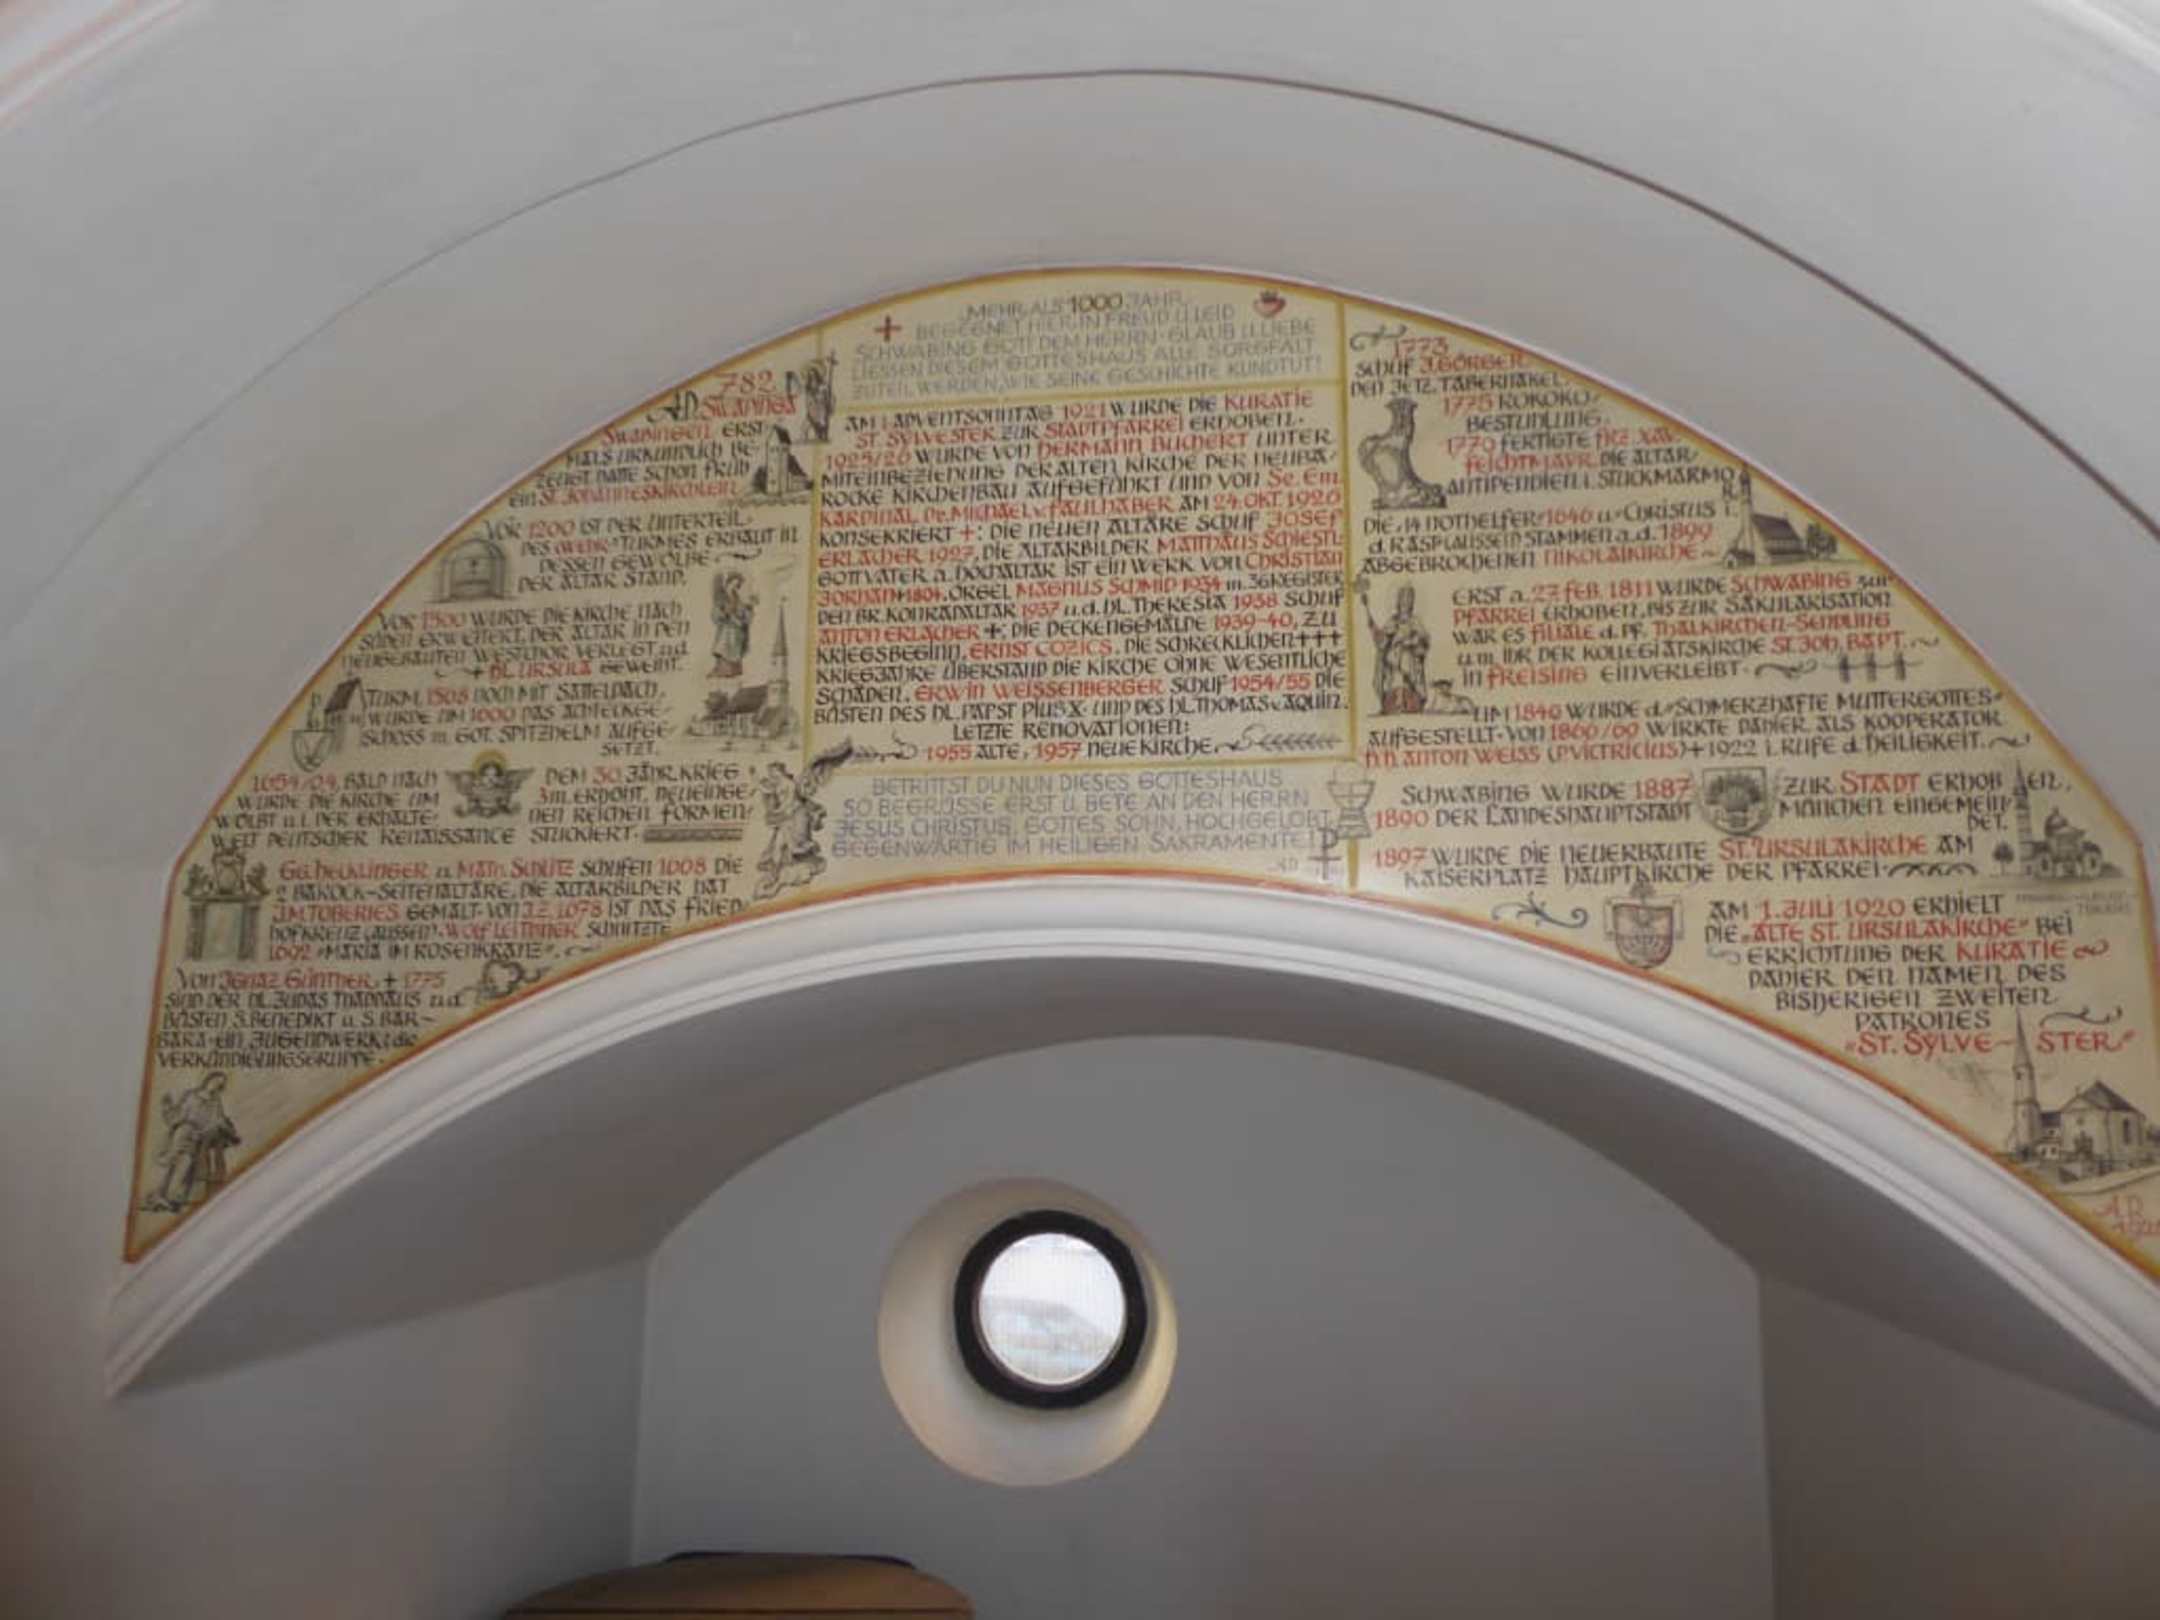 MEHR ALS 1000 JAHR
BEGEGNET HIER IN FREUD U. LEID
SCHWABING GOTT DEM HERRN · GLAUB U. LIEBE
LIESSEN DIESEM GOTTESHAUS ALLE SORGFALT
ZUTEIL WERDEN, WIE SEINE GESCHICHTE KUNDTUT!
782
SWABINGEN ERST
MALS URKUNDLICH BE-
ZEUGT HATTE SCHON FRÜH
EIN ST. JOHANNESKIRCHLEIN
VOR 1200 IST DER UNTERTEIL
DES WEHR-TURMES ERBAUT IN
DESSEN GEWÖLBE
DER ALTAR STAND.
VOR 1500 WURDE DIE KIRCHE NACH
SÜDEN ERWEITERT, DER ALTAR IN DEN
NEUGEBAUTEN WESTCHOR VERLEGT u.d.
+ HL. URSULA GEWEIHT.
TURM, NOCH MIT SATTELDACH,
WURDE UM 1600 DAS ACHTECKGE-
SCHOSS m. GOT. SPITZHELM AUFGE-
SETZT.
BALD NACH DEM 30 JÄHR. KRIEG
WURDE DIE KIRCHE UM 3 m. ERHÖHT, NEUEINGE-
WÖLBT u. i. DER ERHALTE- NEN REICHEN FORMEN-
WELT DEUTSCHER RENAISSANCE STUCKIERT.
SCHUFEN DIE
2 BAROCK-SEITENALTÄRE, DIE ALTARBILDER HAT
GEMALT. VON IST DAS FRIED-
HOFKREUZ (AUSSEN). WOLF LEITHNER SCHNITZTE
1692 "MARIA IM ROSENKRANZ".
VON IGNAZ GÜNTHER + 1775
SIND DER HL. JUDAS THADDÄUS u.d.
BÜSTEN S. BENEDIKT u. S. BAR-
BARA - EIN JUGENDWERK: die
VERKÜNDIGUNGSGRUPPE.
AM 1. ADVENTSONNTAG 1921 WURDE DIE KURATIE
ST. SYLVESTER ZUR STADTPFARREI ERHOBEN.
1925/26 WURDE VON HERMANN BUCHERT UNTER
MITEINBEZIEHUNG DER ALTEN KIRCHE DER NEUBA-
ROCKE KIRCHENBAU AUFGEFÜHRT UND VON Se. Em.
KARDINAL Dr. MICHAEL v. FAULHABER AM 24. OKT. 1926
KONSEKRIERT +: DIE NEUEN ALTÄRE SCHUF JOSEF
ERLACHER 1927, DIE ALTARBILDER MATTHÄUS SCHIESTL
GOTTVATER a. HOCHALTAR IST EIN WERK VON CHRISTIAN
JORHAN +1804. ORGEL MAGNUS SCHMID 1934 m. 36 REGISTER
DEN BR. KONRADALTAR 1937 u.d. HL. THERESIA 1938 SCHUF
ANTON ERLACHER +; DIE DECKENGEMÄLDE 1939-40, ZU
KRIEGSBEGINN, ERNST COZICS. DIE SCHRECKLICHEN +++
KRIEGSJAHRE ÜBERSTAND DIE KIRCHE OHNE WESENTLICHE
SCHÄDEN. ERWIN WEISSENBERGER SCHUF 1954/55 DIE
BÜSTEN DES HL. PAPST PIUS X. UND DES HL. THOMAS v. AQUIN.
LETZTE RENOVATIONEN:
1955 ALTE, 1957 NEUE KIRCHE
BETRITTST DU NUN DIESES GOTTESHAUS
SO BEGRÜSSE ERST U. BETE AN DEN HERRN
JESUS CHRISTUS, GOTTES SOHN, HOCHGELOBT
GEGENWÄRTIG IM HEILIGEN SAKRAMENTE!
1773
SCHUF
DEN JETZ. TABERNAKEL.
1775 ROKOKO-
BESTUHLUNG.
1770 FERTIGTE FRZ. XAV.
FEICHTMAYR DIE ALTAR-
ANTIPENDIEN i. STUCKMARMOR.
DIE 14 NOTHELFER 1646 u. CHRISTUS i.
d. RAST (AUSSEN) STAMMEN a. d. 1899
ABGEBROCHENEN NIKOLAIKIRCHE
ERST a. 27. FEB. 1811 WURDE SCHWABING zur
PFARREI ERHOBEN, BIS ZUR SÄKULARISATION
WAR ES FILIALE d. PF. THALKIRCHEN-SENDLING
u. m. IHR DER KOLLEGIATSKIRCHE ST. JOH. BAPT.
IN FREISING EINVERLEIBT.
UM 1840 WURDE d. "SCHMERZHAFTE MUTTERGOTTES"
AUFGESTELLT. VON WIRKTE DAHIER ALS KOOPERATOR
H.H. ANTON WEISS (P. VICTRICIUS) + 1922 i. RUFE d. HEILIGKEIT.
SCHWABING WURDE 1887 ZUR STADT ERHOBEN,
1890 DER LANDESHAUPTSTADT MÜNCHEN EINGEMEIN-
DET.
1897 WURDE DIE NEUERBAUTE ST. URSULAKIRCHE AM
KAISERPLATZ HAUPTKIRCHE DER PFARREI
AM 1. JULI 1920 ERHIELT
DIE "ALTE ST. URSULAKIRCHE" BEI
ERRICHTUNG DER KURATIE
DAHIER DEN NAMEN DES
BISHERIGEN ZWEITEN
PATRONES
"ST. SYLVE- STER"